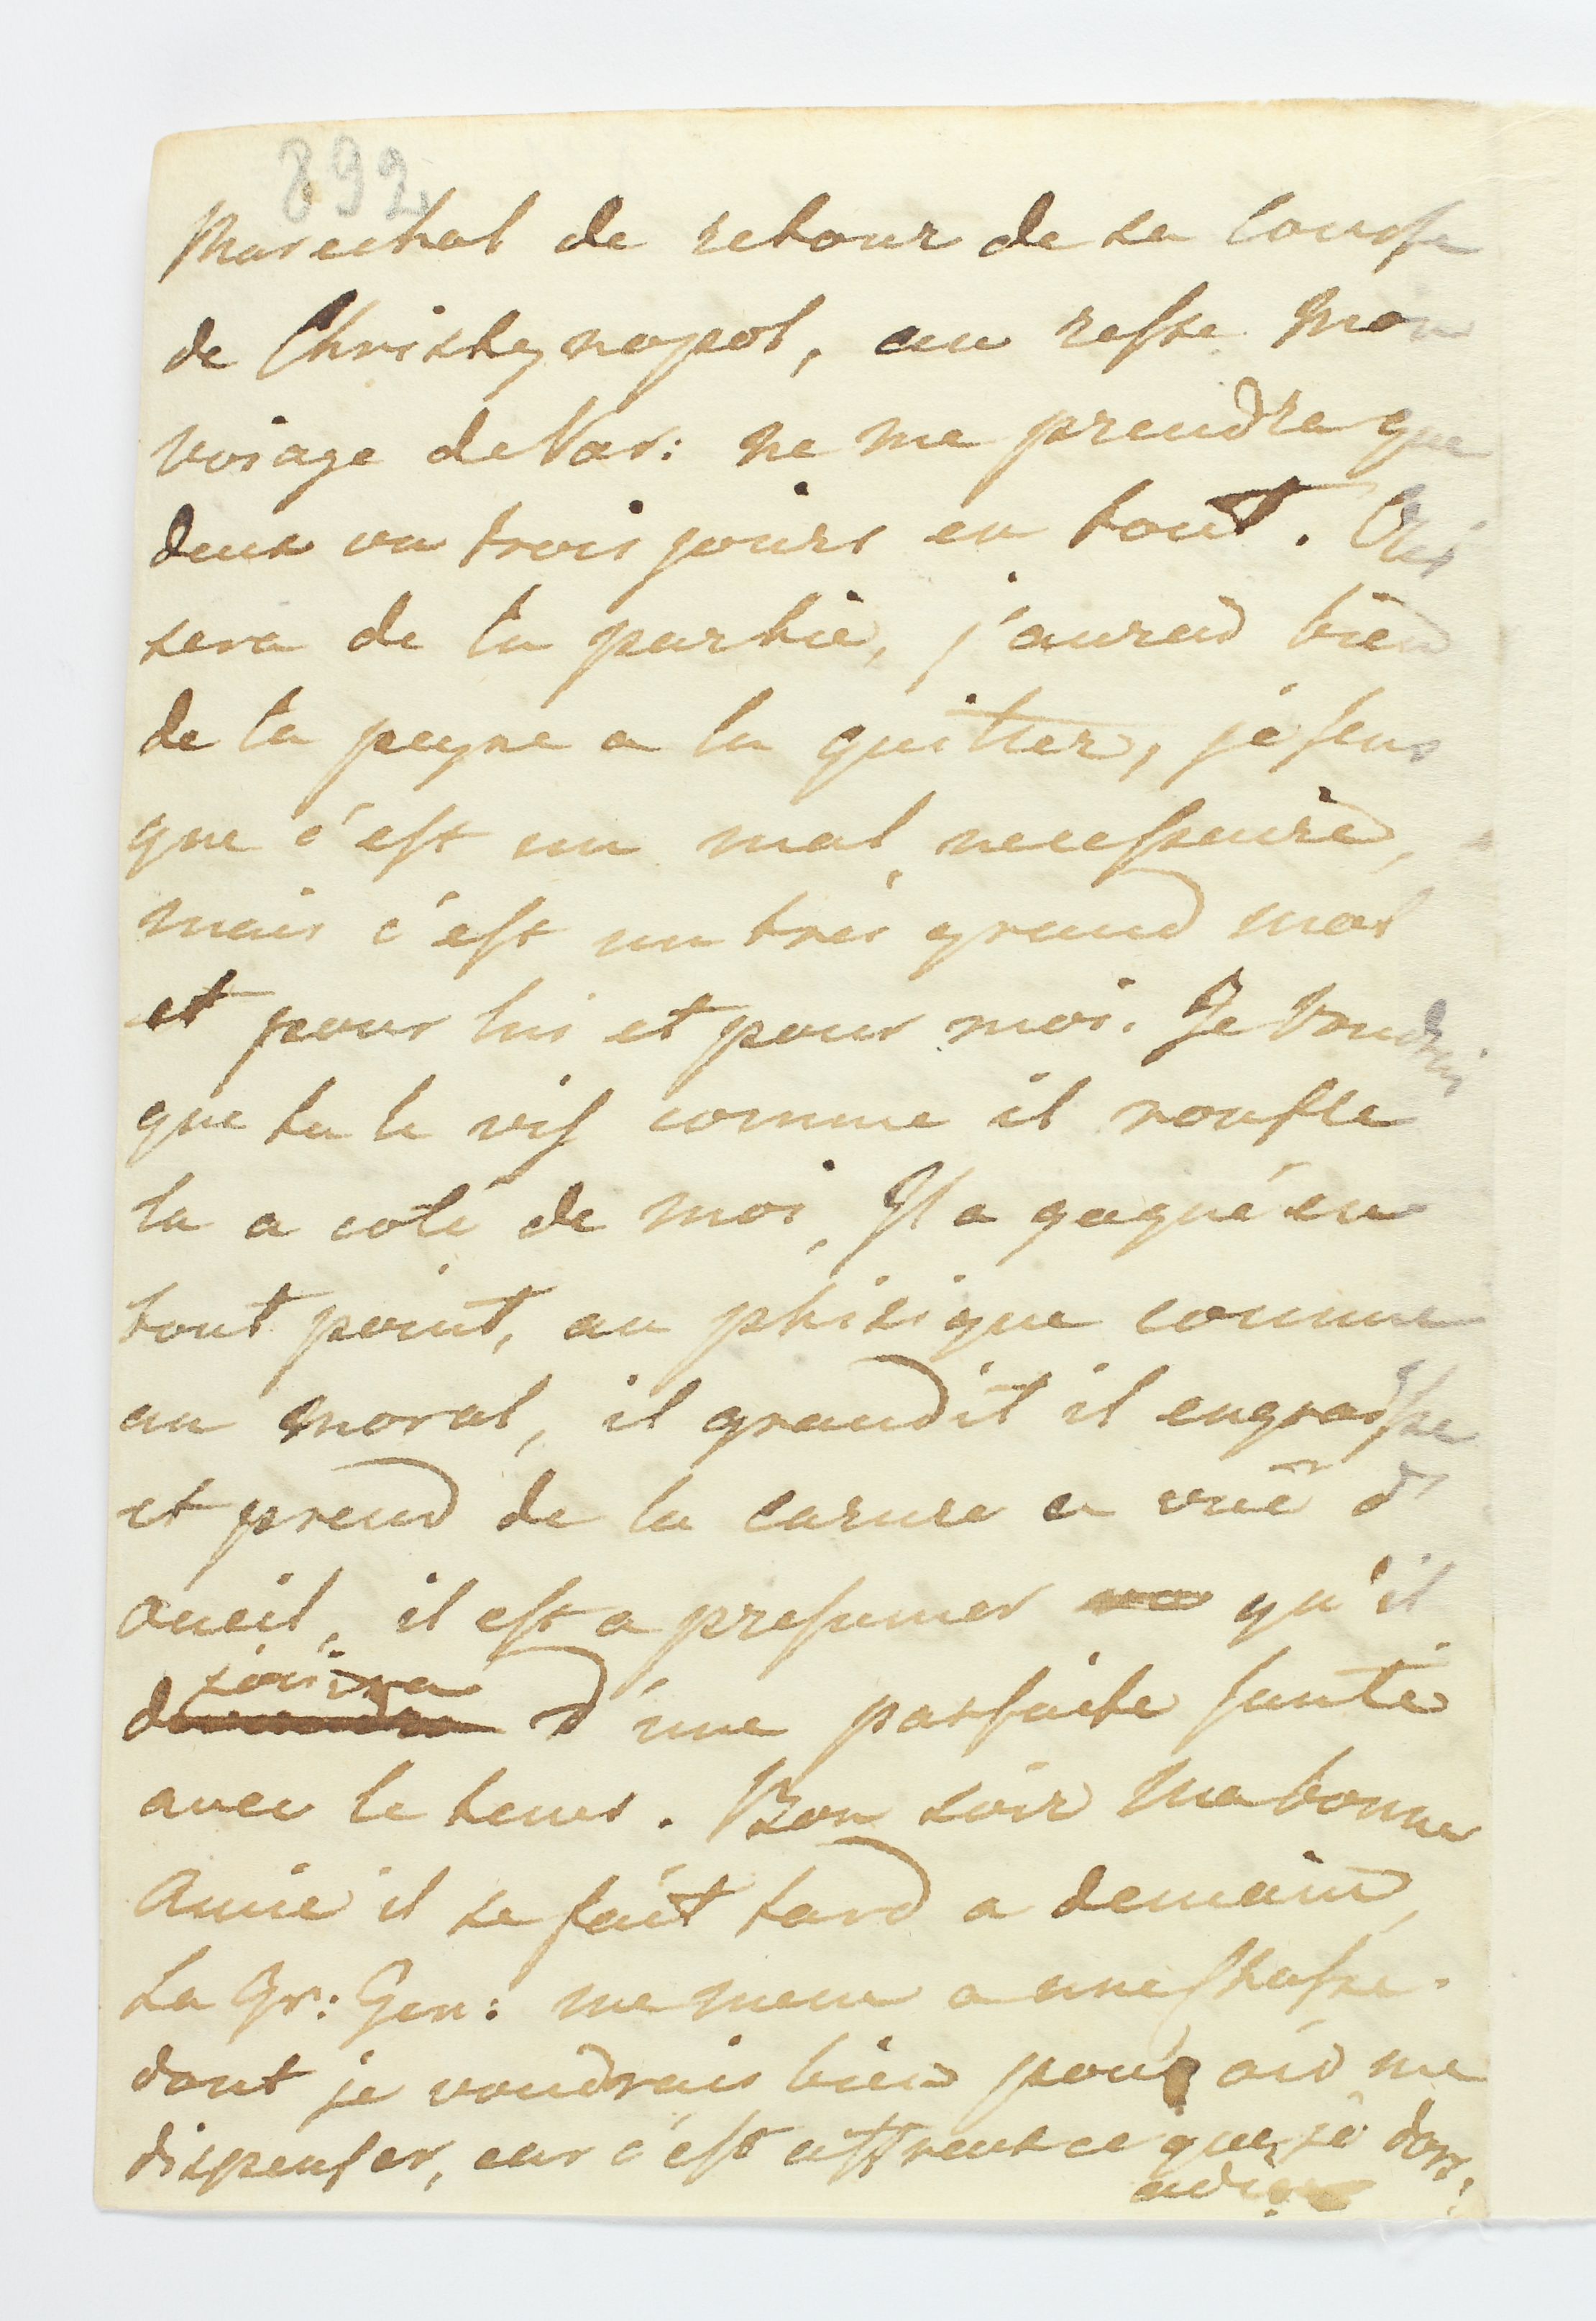 892
Marechal de retour de sa course
de Christynopol, au reste mon
voiage de Var: ne me prendra que
deux ou trois jours en tout.
sera de la partie, j'aurai bien
de la peyne a la quitter, je sens
que c'est un mal necessaire,
mais c'est un tres grand mal
et pour lui et pour moi. Je voudrai
que tu le vis comme il ronfle
la a coté de moi, Il a gagné en
tout point, au phisique comme
au moral, il grandit il engraisse
et prend de la carure a vuë d'
oueil, il est a presumer qu'il
jouira d'une parfaite santé
avec le tems. Bon soir Ma bonne
Amie il se fait tard a demain,
La Gr: Gen: me mene a une chasse
dont je voudrais bien pouvoir me
dispenser, car c'est affreux ce que je dors,
adieu